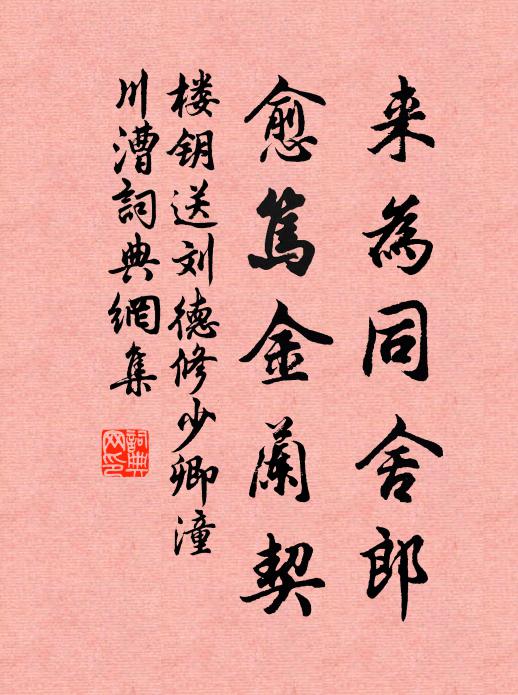 来為同舍郎
愈篤金蘭契
楼钥送刘德修少卿潼
川漕詞典網集
詞典
网印